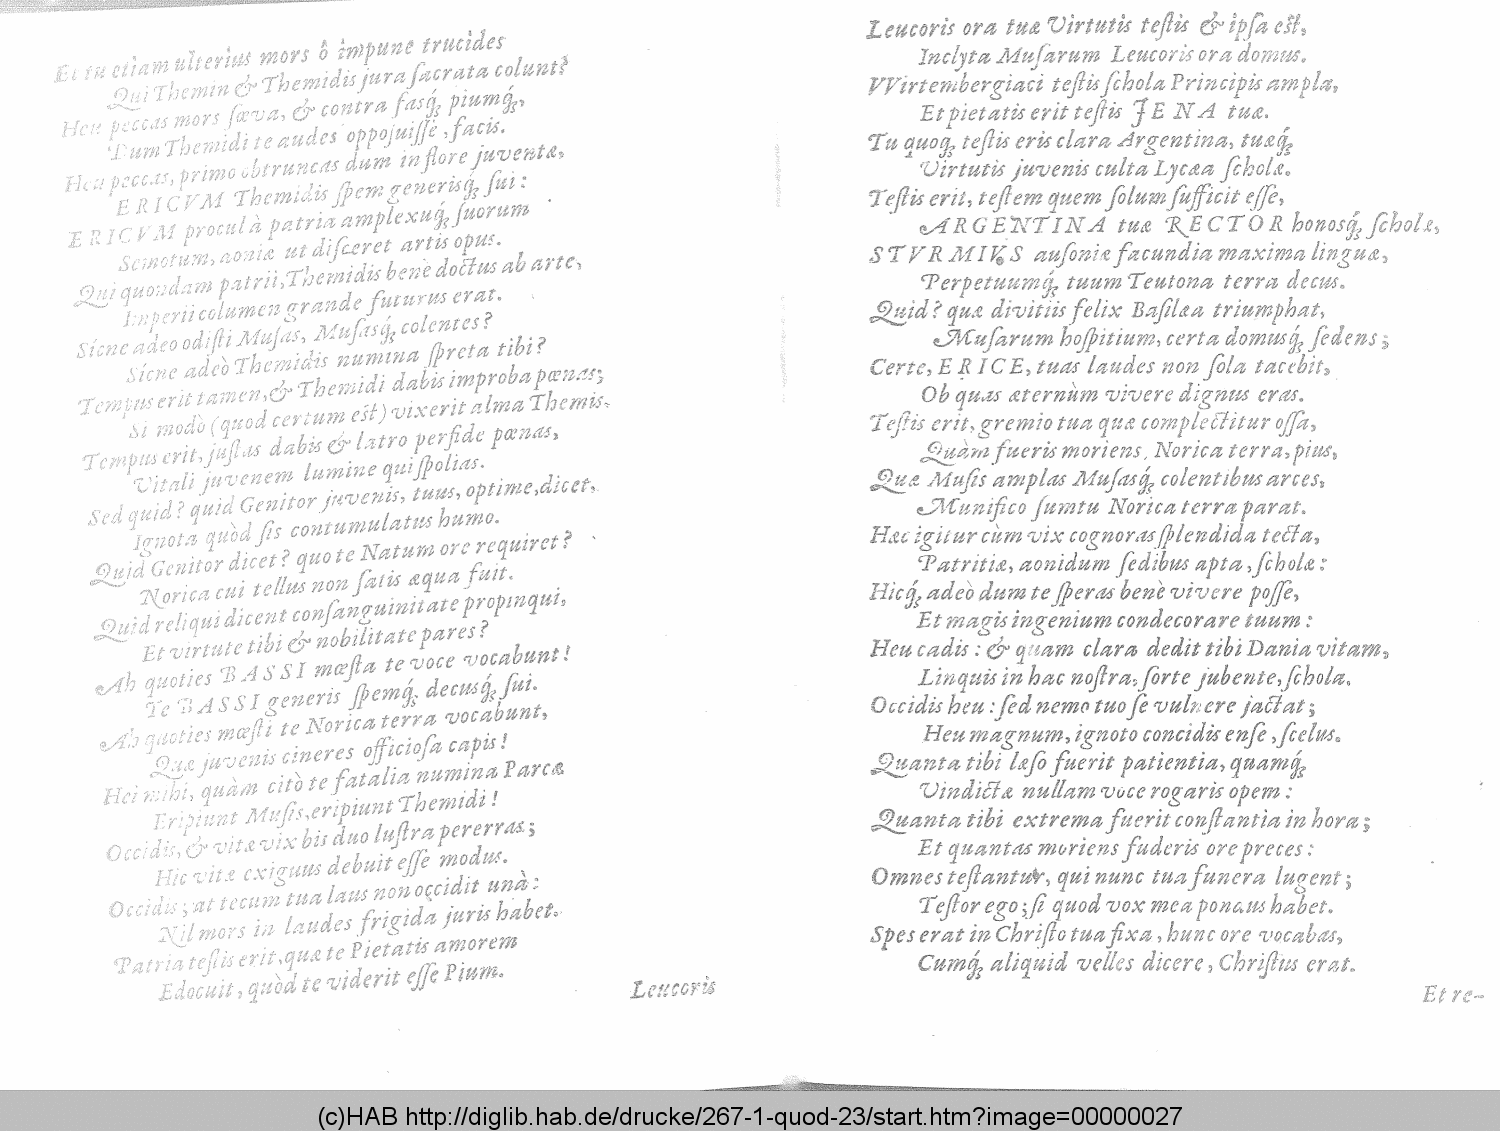 Et tu etiam ulterius mors ô impune trucides
Qui Themin & Themidis jura ſacrata colunt?
Heu peccas mors ſæva, & contra fasq́; piumq́;,
Dum Themidi te audes oppoſuiſſe, facis.
Heu peccas, primo obtruncas dum in flore juventæ,
ERICVM Themidis ſpem generisq́; ſui:
ERICVM procul à patria amplexuq́; ſuorum
Semotum, aoniæ ut diſceret artis opus.
Qui quondam patrii, Themidis benè doctus ab arte,
Imperii columen grande futurus erat.
Sicne adeo odiſti Muſas, Muſasq́; colentes?
Sicne adeò Themidis numina ſpreta tibi?
Tempus erit tamen, & Themidi dabis improba pœnas;
Si modò (quod certum est) vixerit alma Themis.
Tempus erit, juſtas dabis & latro perfide pœnas,
Vitali juvenem lumine qui ſpolias.
Sed quid? quid Genitor juvenis, tuus, optime, dicet,
Ignota quòd ſis contumulatus humo.
Quid Genitor dicet? quo te Natum ore requiret?
Norica cui tellus non ſatis æqua fuit.
Quid reliqui dicent conſanguinitate propinqui,
Et virtute tibi & nobilitate pares?
Ah quoties BASSI mœſta te voce vocabunt!
Te BASSI generis ſpemq́; decusq́; ſui.
Ah quoties mœſti te Norica terra vocabunt,
Quæ juvenis cineres officioſa capis!
Hei mihi, quàm citò te fatalia numina Parcæ
Eripiunt Muſis, eripiunt Themidi!
Occidis, & vitæ vix bis duo luſtra pererras;
Hic vitæ exiguus debuit eſſe modus.
Occidis; at tecum tua laus non occidit unà:
Nil mors in laudes frigida juris habet.
Patria teſtis erit, quæ te Pietatis amorem
Edocuit, quòd te viderit eſſe Pium.
Leucoris
Leucoris ora tuæ Virtutis teſtis & ipſa eſt,
Inclyta Muſarum Leucoris ora domus.
VVirtembergiaci teſtis ſchola Principis ampla,
Et pietatis erit teſtis JENA tuæ.
Tu quoq́; teſtis eris clara Argentina, tuæq́;
Virtutis juvenis culta Lycæa ſcholæ.
Teſtis erit, teſtem quem ſolum ſufficit eſſe,
ARGENTINA tuæ RECTOR honosq́; ſcholæ,
STVRMIVS auſoniæ facundia maxima linguæ,
Perpetuumq́; tuum Teutona terra decus.
Quid? quæ divitiis felix Baſilæa triumphat,
Muſarum hoſpitium, certa domusq́; ſedens;
Certe, ERICE, tuas laudes non ſola tacebit,
Ob quas æternùm vivere dignus eras.
Teſtis erit, gremio tua quæ complectitur oſſa,
Quàm fueris moriens, Norica terra, pius,
Quæ Muſis amplas Muſasq́; colentibus arces,
Munifico ſumtu Norica terra parat.
Hæc igitur cùm vix cognoras ſplendida tecta,
Patritiæ, aonidum ſedibus apta, ſcholæ:
Hicq́; adeò dum te ſperas benè vivere poſſe,
Et magis ingenium condecorare tuum:
Heu cadis: & quam clara dedit tibi Dania vitam,
Linquis in hac noſtra, ſorte jubente, ſchola.
Occidis heu: ſed nemo tuo ſe vulnere jactat;
Heu magnum, ignoto concidis enſe, ſcelus.
Quanta tibi læſo fuerit patientia, quamq́;
Vindictæ nullam voce rogaris opem:
Quanta tibi extrema fuerit conſtantia in hora;
Et quantas moriens fuderis ore preces:
Omnes teſtantur, qui nunc tua funera lugent;
Teſtor ego; ſi quod vox mea pondus habet.
Spes erat in Chriſto tua fixa, hunc ore vocabas,
Cumq́; aliquid velles dicere, Chriſtus erat.
Et re-
(c)HAB http://diglib.hab.de/drucke/267-1-quod-23/start.htm?image=00000027